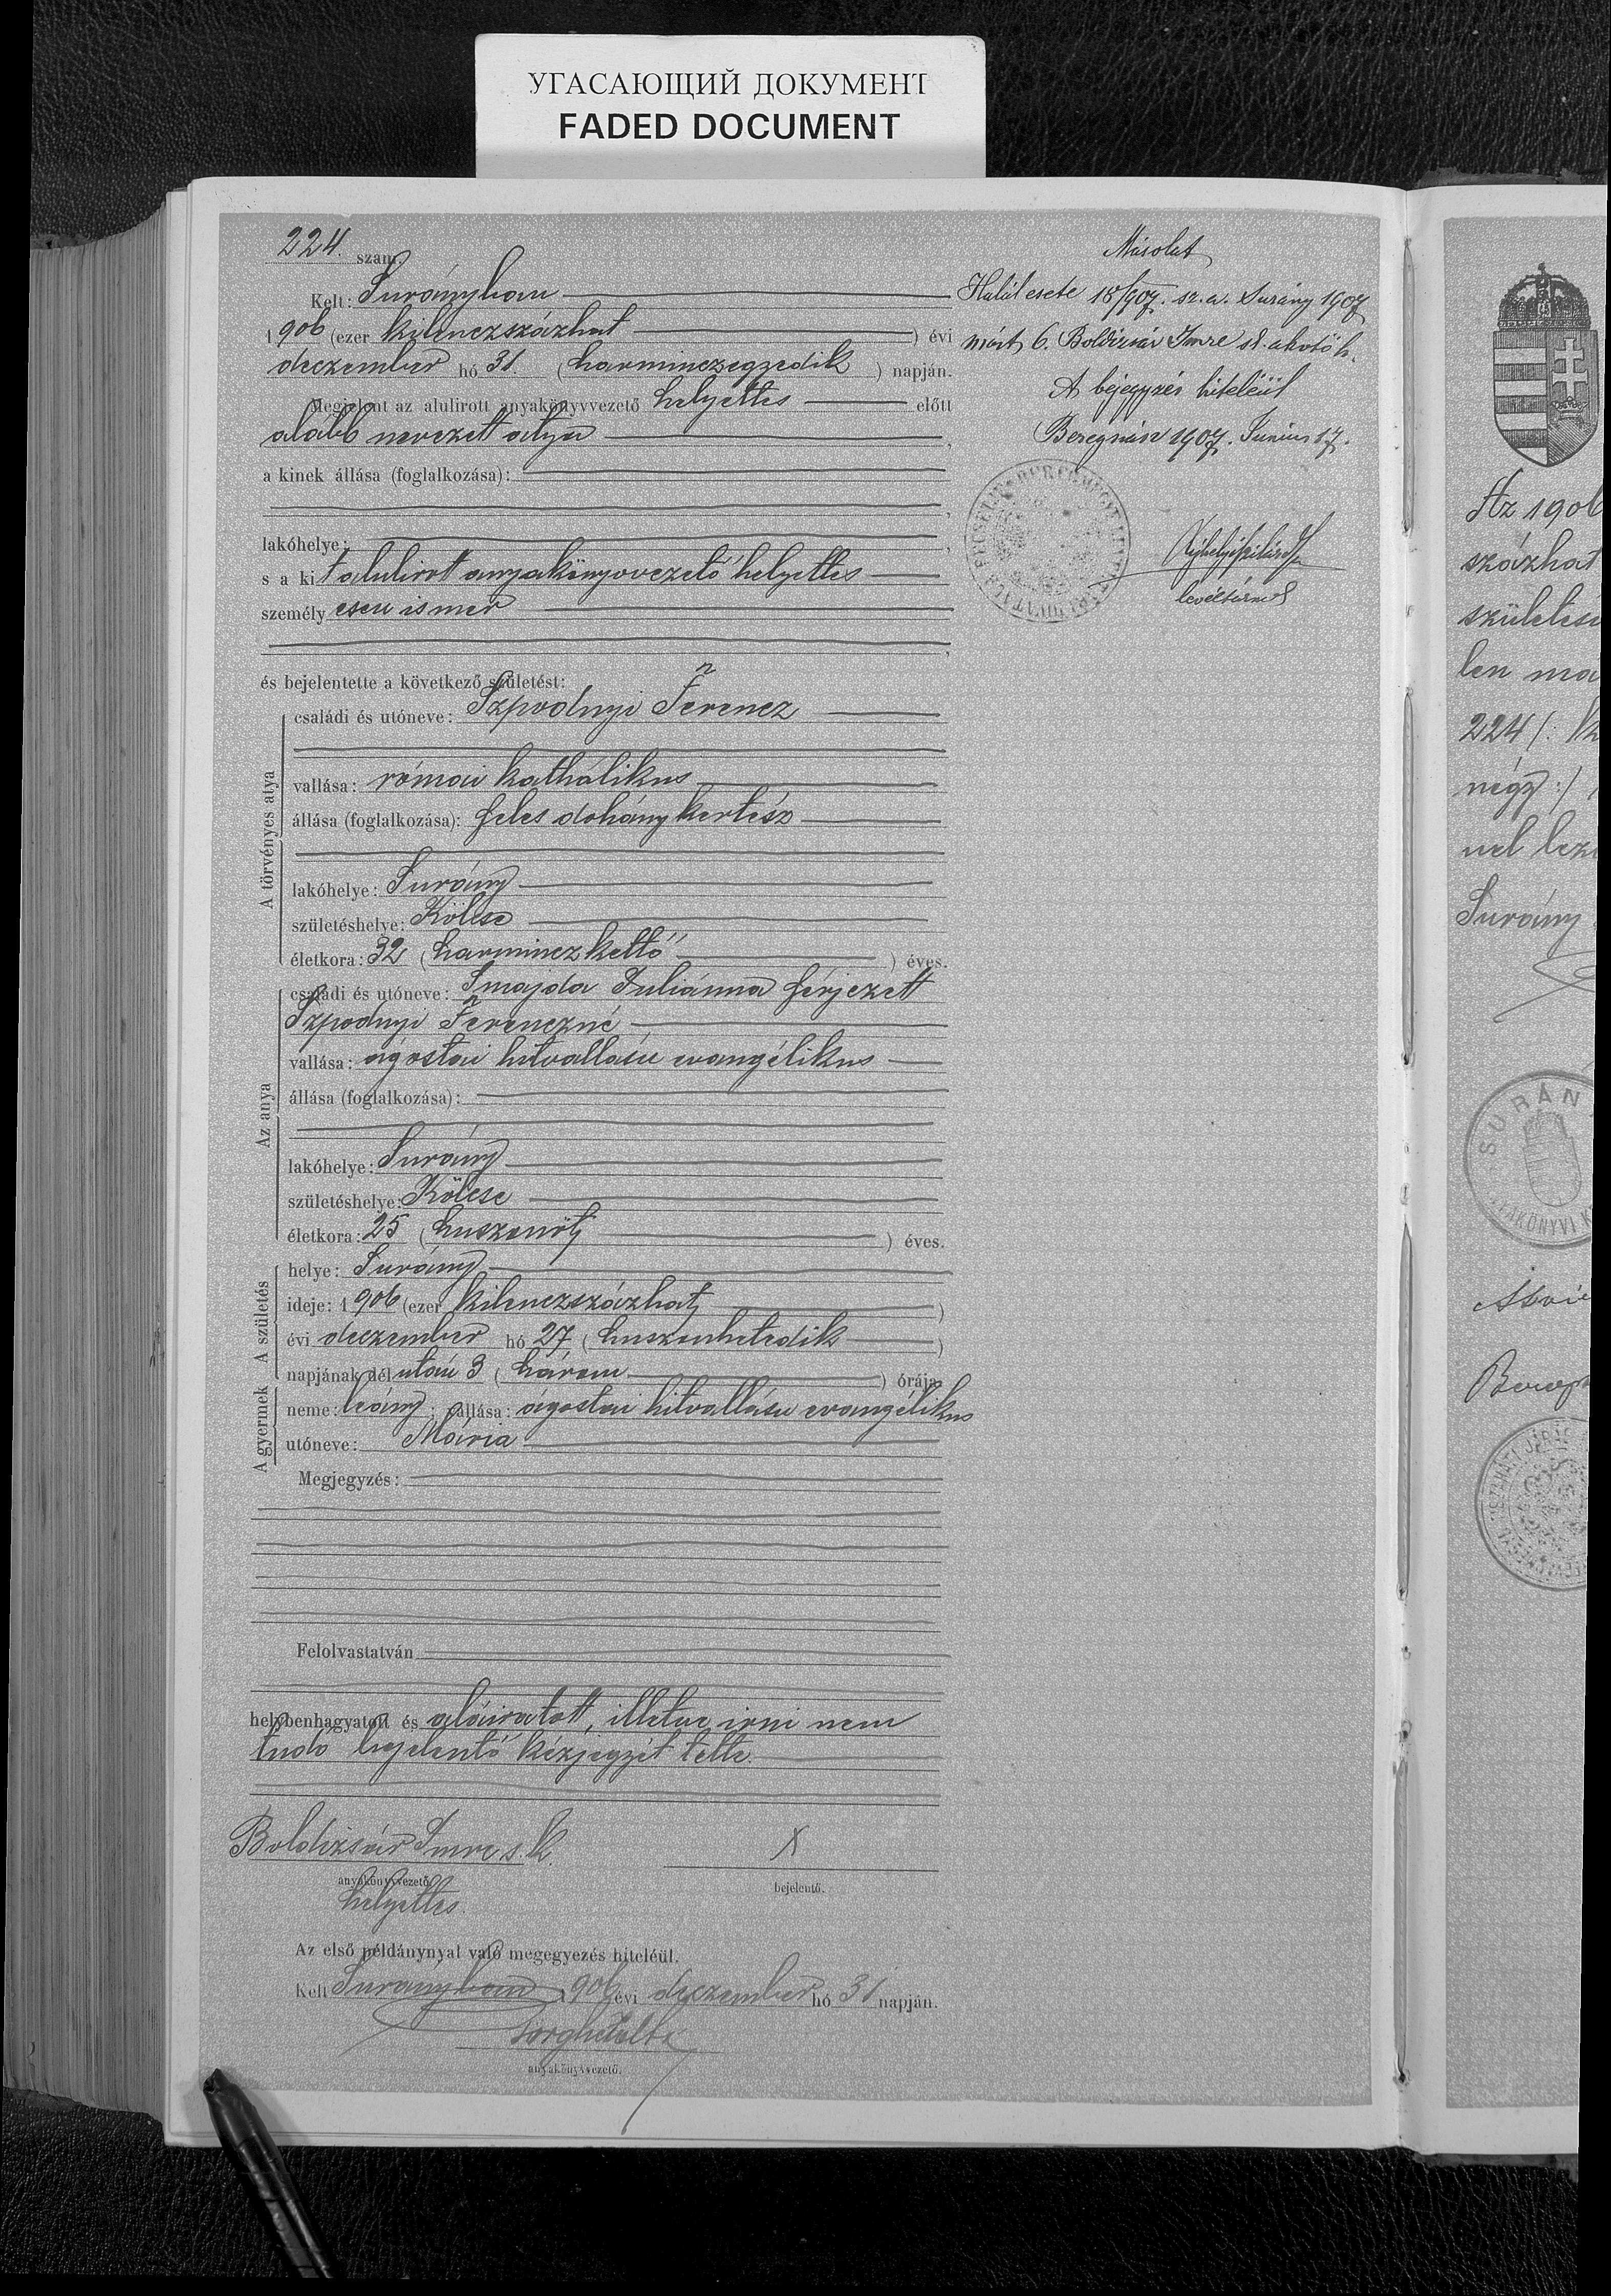 УГАСАЮЩИЙ ДОКУМЕНТ
FADED DOCUMENT
224. szám.
Kelt: Surányban
1906 (ezer kilenczszázhat) évi
deczember hó 31. (harminczegyedik) napján.
Megjelent az alulirott anyakönyvvezető helyettes előtt
alább nevezett atya,
a kinek állása (foglalkozása):
lakóhelye:
s a kit alulirott anyakönyvvezető helyettes
személyesen ismer
és bejelentette a következő születést:
A törvényes atya
családi és utóneve: Szpodnyi Ferencz
vallása: római kathólikus
állása (foglalkozása): feles dohánykertész
lakóhelye: Surány
születéshelye: Kölcse
életkora: 32 (harminczkettő) éves.
Az anya
családi és utóneve: Smajda Juliánna férjezett
Szpodnyi Ferenczné
vallása: ágostai hitvallásu evangélikus
állása (foglalkozása):
lakóhelye: Surány
születéshelye: Kölcse
életkora: 25 (huszonöt) éves.
A születés
helye: Surány
ideje: 1906 (ezer kilenczszázhat)
évi deczember hó 27 (huszonhetedik)
napjának dél után 3 (három) órája
A gyermek
neme: leány; vallása: ágostai hitvallásu evangélikus
utóneve: Mária
Megjegyzés:
Felolvastatván
helybenhagyatott és aláiratott, illetve irni nem
tudó bejelentő kézjegyét tette.
Boldizsár Imre s. k. X
anyakönyvvezető bejelentő.
helyettes.
Az első példánynyal való megegyezés hiteléül.
Kelt Surányban, 1906 évi deczember hó 31 napján.
anyakönyvvezető.
Másolat
Halál esete 18/907. sz. a. Surány 1907
márt 6. Boldizsár Imre sk. akvtő h.
A bejegyzés hiteléül
Beregszász 1907. Junius 17.
levéltárnok
Az 1906
százhat
születési
len ma
224 /. k
négy :/
vel lezá
Surány
SURÁN